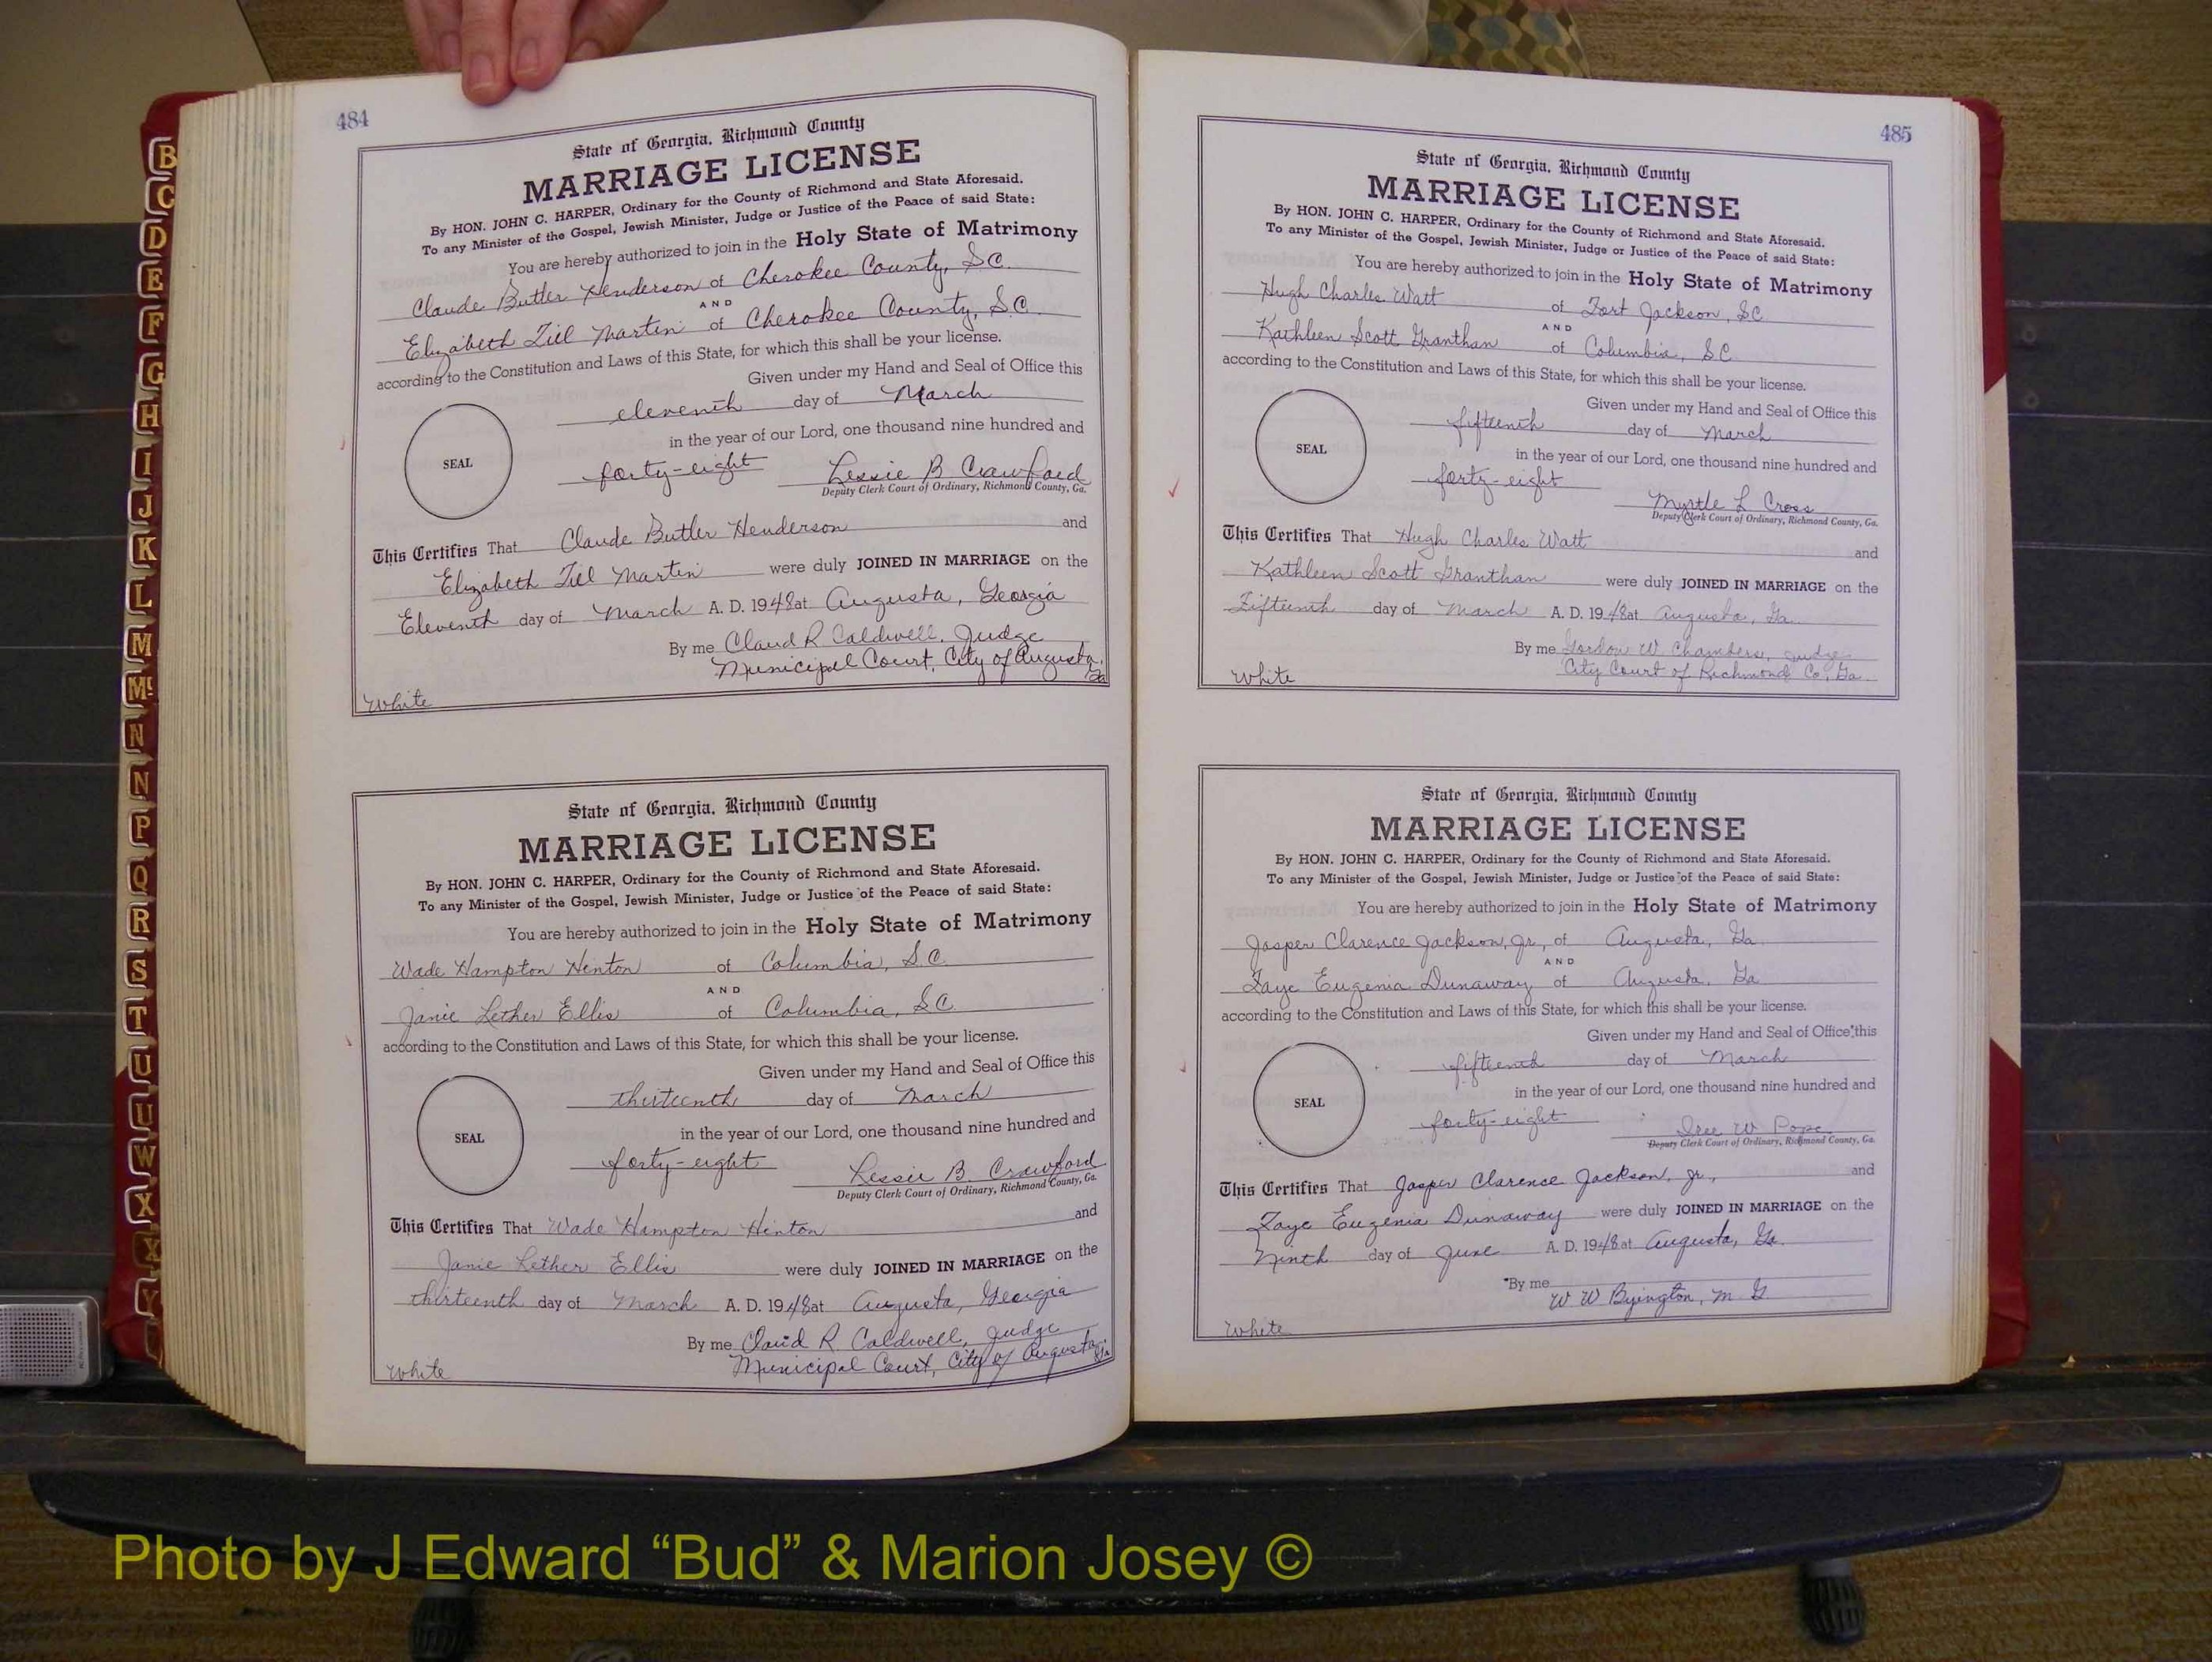 484
State of Georgia, Richmond County
MARRIAGE LICENSE
By HON. JOHN C. HARPER, Ordinary for the County of Richmond and State Aforesaid.
To any Minister of the Gospel, Jewish Minister, Judge or Justice of the Peace of said State:
You are hereby authorized to join in the Holy State of Matrimony
Claude Butler Henderson of Cherokee County, S.C.
AND
Elizabeth Till Martin of Cherokee County, S.C.
according to the Constitution and Laws of this State, for which this shall be your license.
Given under my Hand and Seal of Office this
eleventh day of March
in the year of our Lord, one thousand nine hundred and
SEAL
forty-eight Lessie B Crawford
Deputy Clerk Court of Ordinary, Richmond County, Ga.
This Certifies That Claude Butler Henderson and
Elizabeth Till Martin were duly JOINED IN MARRIAGE on the
Eleventh day of March A. D. 1948 at Augusta, Georgia
By me Claud R Caldwell, Judge
Municipal Court, City of Augusta, Ga
White
State of Georgia, Richmond County
MARRIAGE LICENSE
By HON. JOHN C. HARPER, Ordinary for the County of Richmond and State Aforesaid.
To any Minister of the Gospel, Jewish Minister, Judge or Justice of the Peace of said State:
You are hereby authorized to join in the Holy State of Matrimony
Wade Hampton Hinton of Columbia, S.C.
AND
Janie Lether Ellis of Columbia, S.C.
according to the Constitution and Laws of this State, for which this shall be your license.
Given under my Hand and Seal of Office this
thirteenth day of March
in the year of our Lord, one thousand nine hundred and
SEAL
forty-eight Lessie B. Crawford
Deputy Clerk Court of Ordinary, Richmond County, Ga.
This Certifies That Wade Hampton Hinton and
Janie Lether Ellis were duly JOINED IN MARRIAGE on the
thirteenth day of March A. D. 1948 at Augusta, Georgia
By me Claud R. Caldwell, Judge
Municipal Court, City of Augusta, Ga
White
485
State of Georgia, Richmond County
MARRIAGE LICENSE
By HON. JOHN C. HARPER, Ordinary for the County of Richmond and State Aforesaid.
To any Minister of the Gospel, Jewish Minister, Judge or Justice of the Peace of said State:
You are hereby authorized to join in the Holy State of Matrimony
Hugh Charles Watt of Fort Jackson, S.C.
AND
Kathleen Scott Granthan of Columbia, S.C.
according to the Constitution and Laws of this State, for which this shall be your license.
Given under my Hand and Seal of Office this
fifteenth day of March
in the year of our Lord, one thousand nine hundred and
SEAL
forty-eight
Myrtle L Cross
Deputy Clerk Court of Ordinary, Richmond County, Ga.
This Certifies That Hugh Charles Watt and
Kathleen Scott Granthan were duly JOINED IN MARRIAGE on the
Fifteenth day of March A. D. 1948 at Augusta, Ga.
By me Gordon W. Chambers, Judge
City Court of Richmond Co, Ga.
White
State of Georgia, Richmond County
MARRIAGE LICENSE
By HON. JOHN C. HARPER, Ordinary for the County of Richmond and State Aforesaid.
To any Minister of the Gospel, Jewish Minister, Judge or Justice of the Peace of said State:
You are hereby authorized to join in the Holy State of Matrimony
Jasper Clarence Jackson, Jr., of Augusta, Ga.
AND
Faye Eugenia Dunaway of Augusta, Ga
according to the Constitution and Laws of this State, for which this shall be your license.
Given under my Hand and Seal of Office this
fifteenth day of March
in the year of our Lord, one thousand nine hundred and
SEAL
forty-eight Iree W Pope
Deputy Clerk Court of Ordinary, Richmond County, Ga.
This Certifies That Jasper Clarence Jackson, Jr., and
Faye Eugenia Dunaway were duly JOINED IN MARRIAGE on the
Ninth day of June A. D. 1948 at Augusta, Ga.
By me
W W Byington, M G
White
B
C
D
E
F
G
H
I
J
K
L
M
Mc
N
N
P
Q
R
S
T
U
U
W
X
X
Y
Photo by J Edward “Bud” & Marion Josey ©